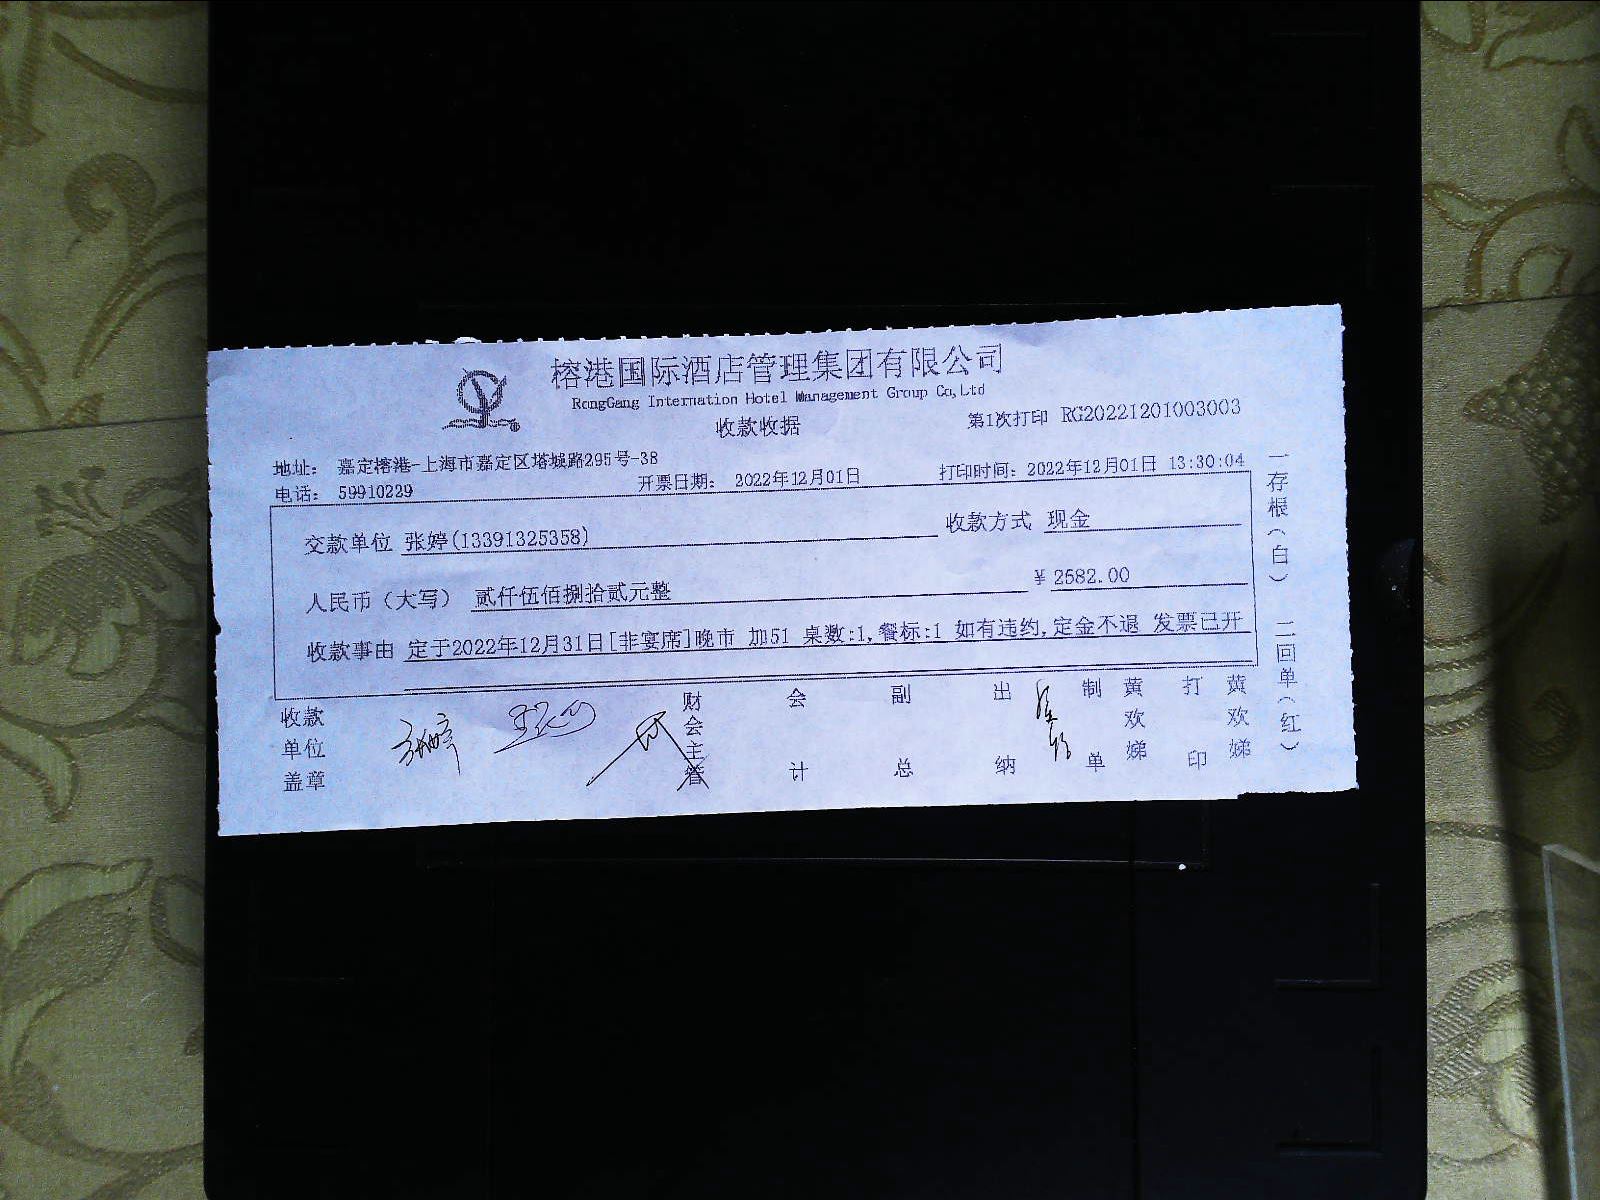 榕港国际酒店管理集团有限公司
RongGang Internation Hotel Management Group Co,Ltd
收款收据
第1次打印 RG20221201003003
地址： 嘉定榕港-上海市嘉定区塔城路295号-38
电话： 59910229 开票日期： 2022年12月01日 打印时间：2022年12月01日 13:30:04
交款单位 张婷(13391325358) 收款方式 现金
人民币（大写） 贰仟伍佰捌拾贰元整 ¥ 2582.00
收款事由 定于2022年12月31日[非宴席]晚市 加51 桌数:1,餐标:1 如有违约,定金不退 发票已开
收款单位盖章
张婷
财会主管
会计
副总
出纳
制单 黄欢娣
打印 黄欢娣
一存根（白） 二回单（红）